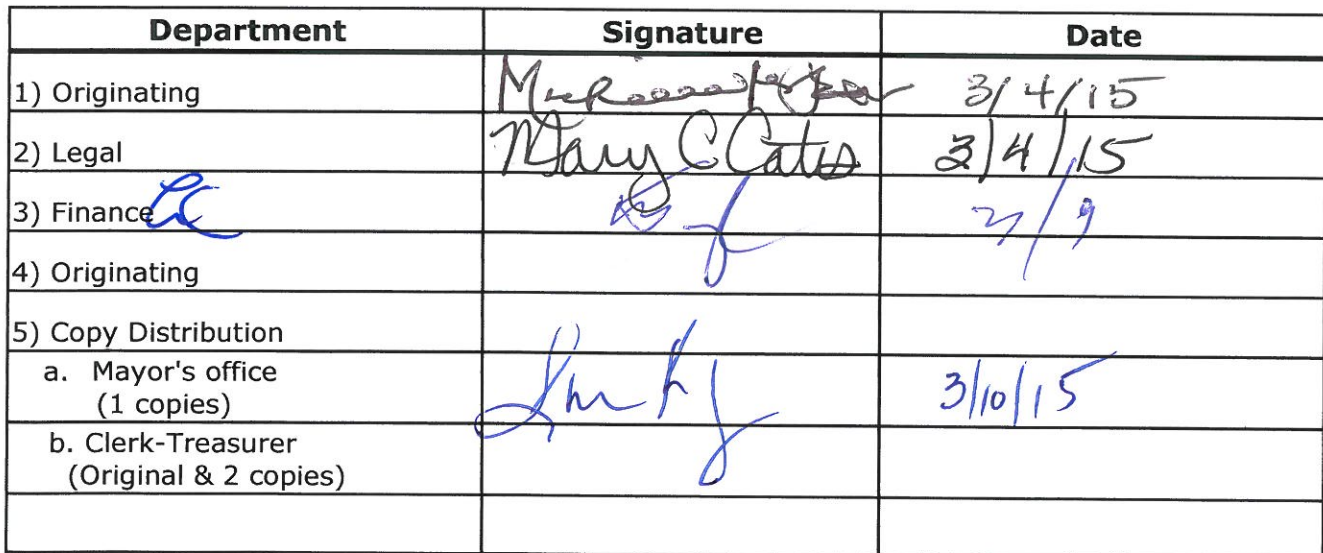 Department Signature Date
1) Originating 3/4/15
2) Legal Mary C Cates 3/4/15
3) Finance
4) Originating
5) Copy Distribution
a. Mayor's office
(1 copies) 3/10/15
b. Clerk-Treasurer
(Original & 2 copies)